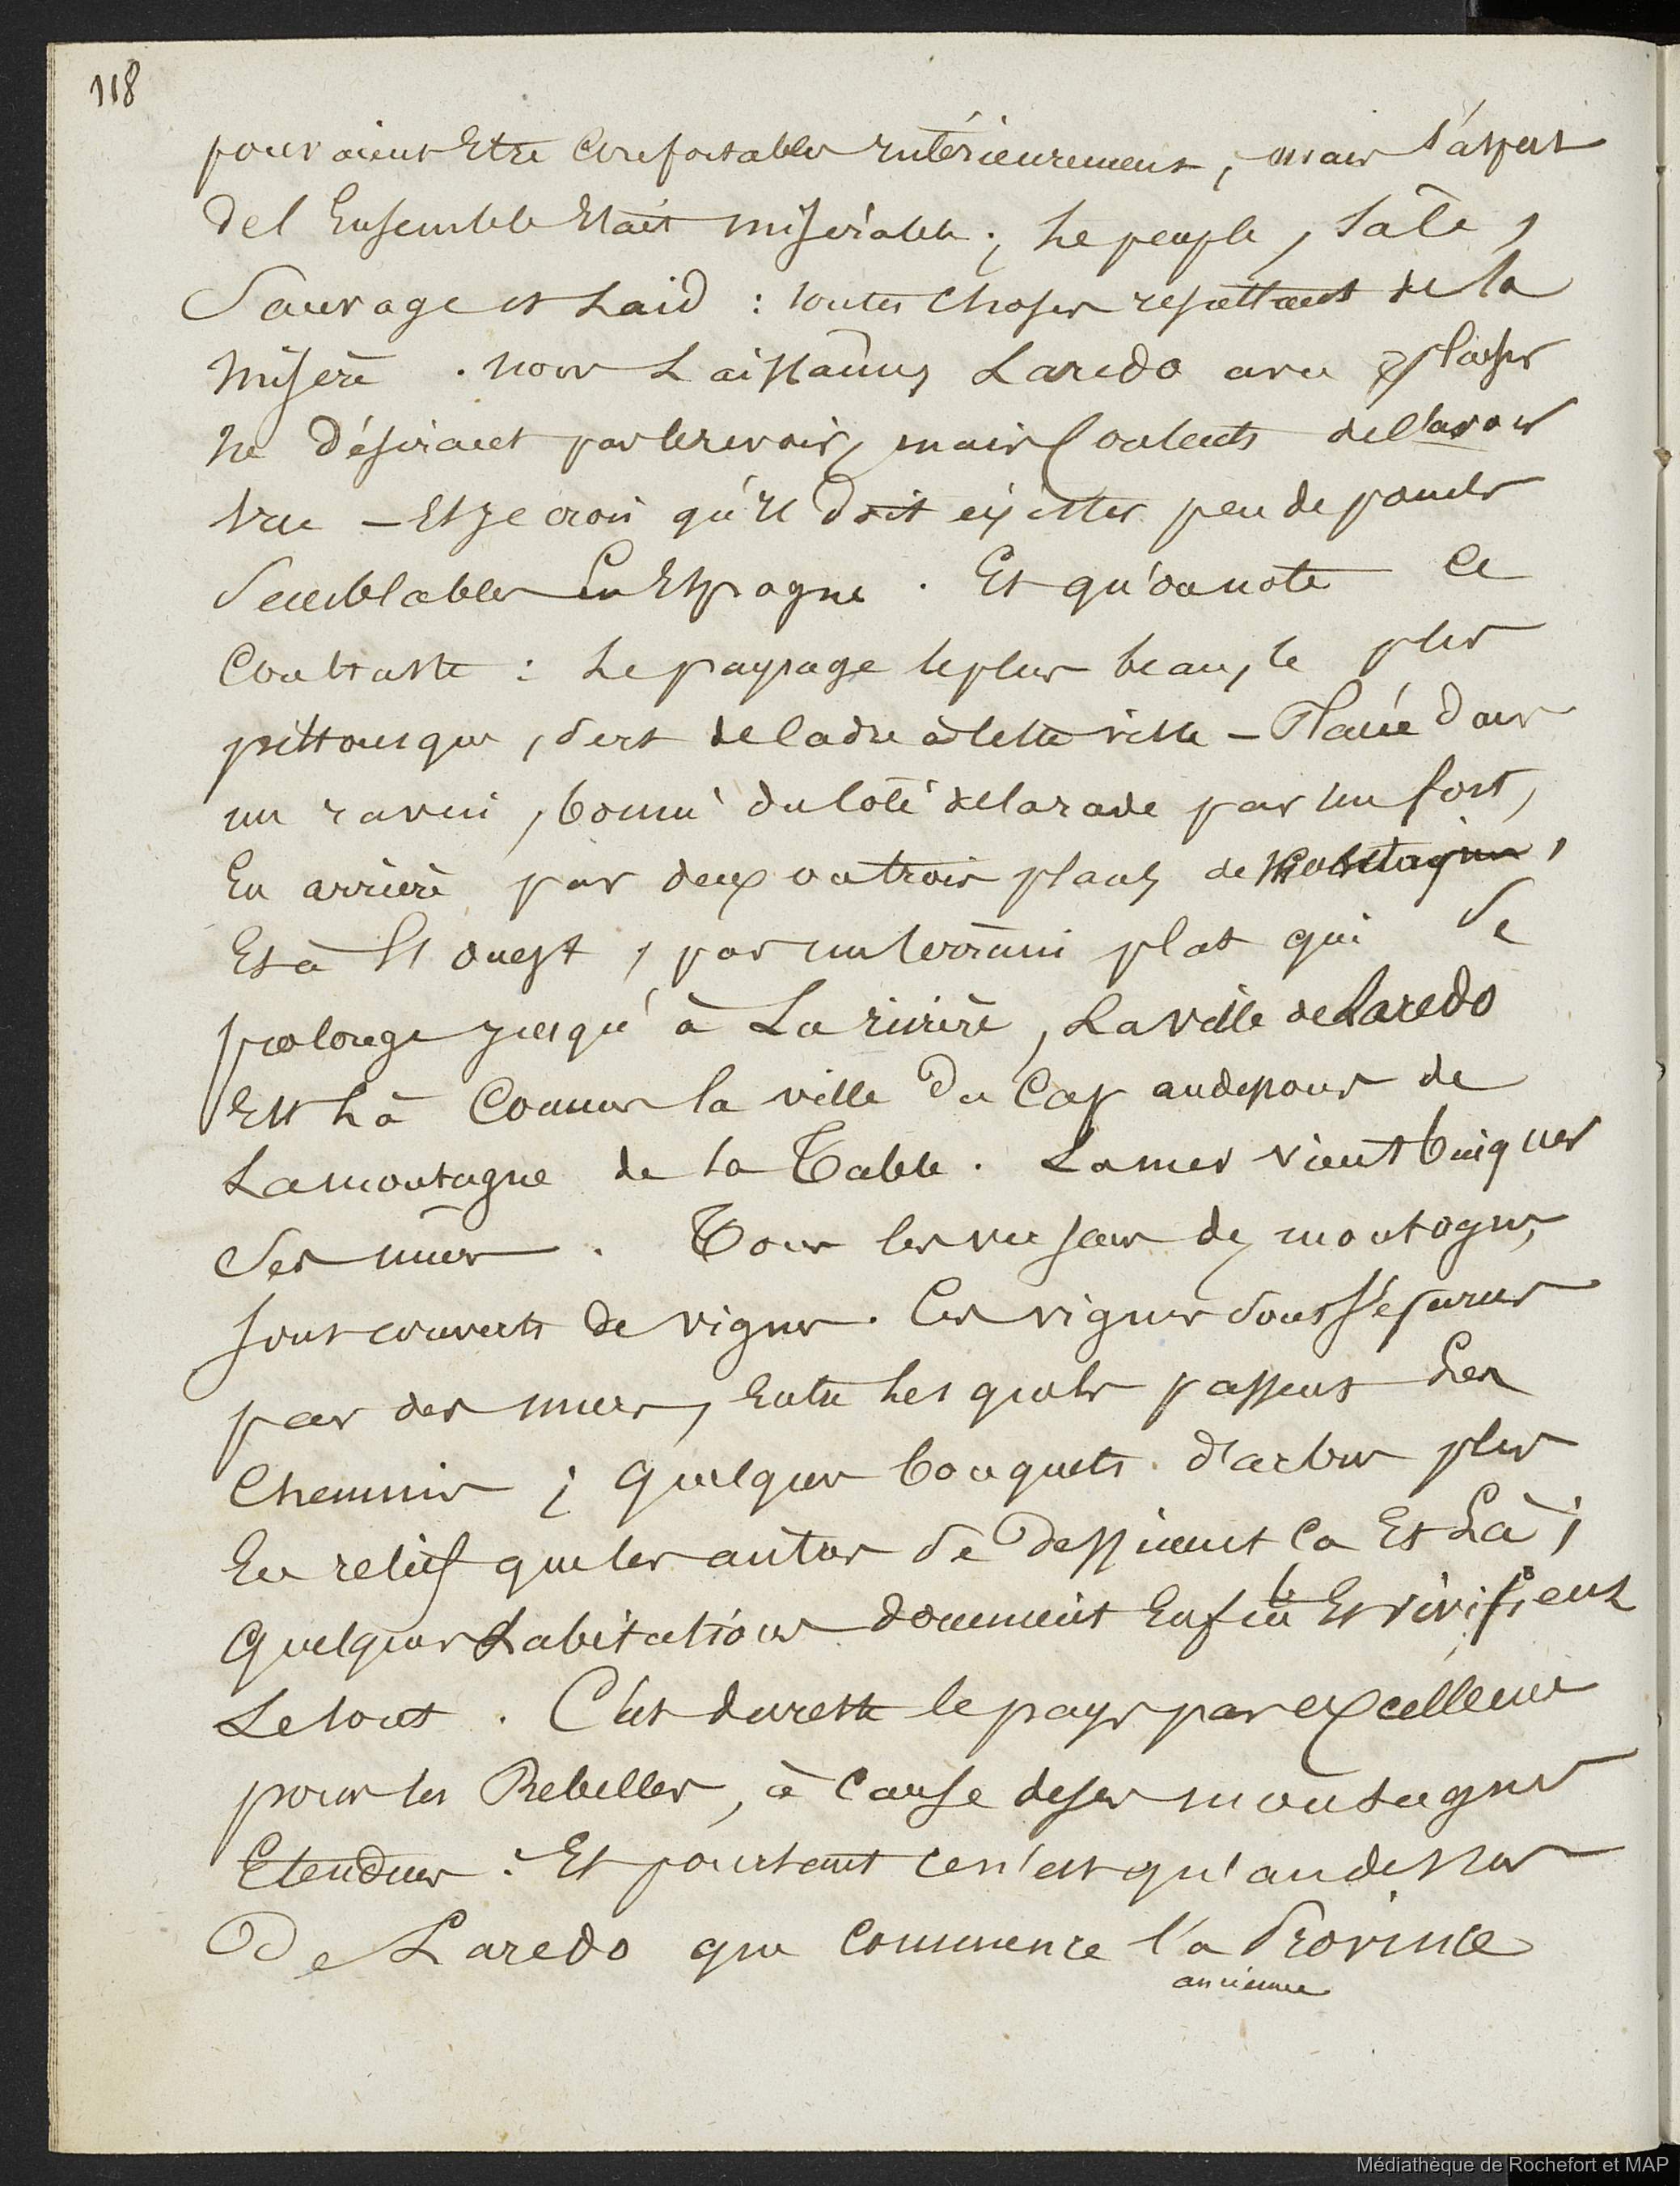 118
pouvaient Etre Confortables intérieurement, mais l'aspect
del Ensemble Etait misérable ; le peuple, sâle,
Sauvage et Laid : toutes choses résultant de la
misère . nous Laissâmes Laredo avec plaisir
ne désirant pas le revoir, mais Contents de l'avoir
vue – Et je crois qu'il doit éxister peu de pareils
Semblables En Espagne . Et qu'on note ce
Contraste : Le paysage le plus beau, le plus
pittoresque, sert de cadre à cette ville – Placée dans
un ravin, borné du côté de la rade par un fort,
En arrière par deux ou trois plans de Montagnes,
Et à l'ouest, par un terrain plat qui se
prolonge jusqu'à La rivière, La ville de Laredo
Est là Comme la ville du Cap au dessous de
La montagne de la Table . La mer vient baigner
Ses murs . Tous les versans des montagnes
sont couverts de vignes . Ces vignes sont séparées
par des murs, Entre lesquels passent les
Chemins ; quelques bouquets d'arbres plus
En relief que les autres se dessinent ça Et Là ;
quelques habitations dominent Enfin Et vivifient
Le tout . C'est du reste le pays par excellence
pour les Rebelles, à cause de ses montagnes
Etendues : Et pourtant ce n'est qu'au dessus
De Laredo que commence l'a Province
ancienne
Médiathèque de Rochefort et MAP